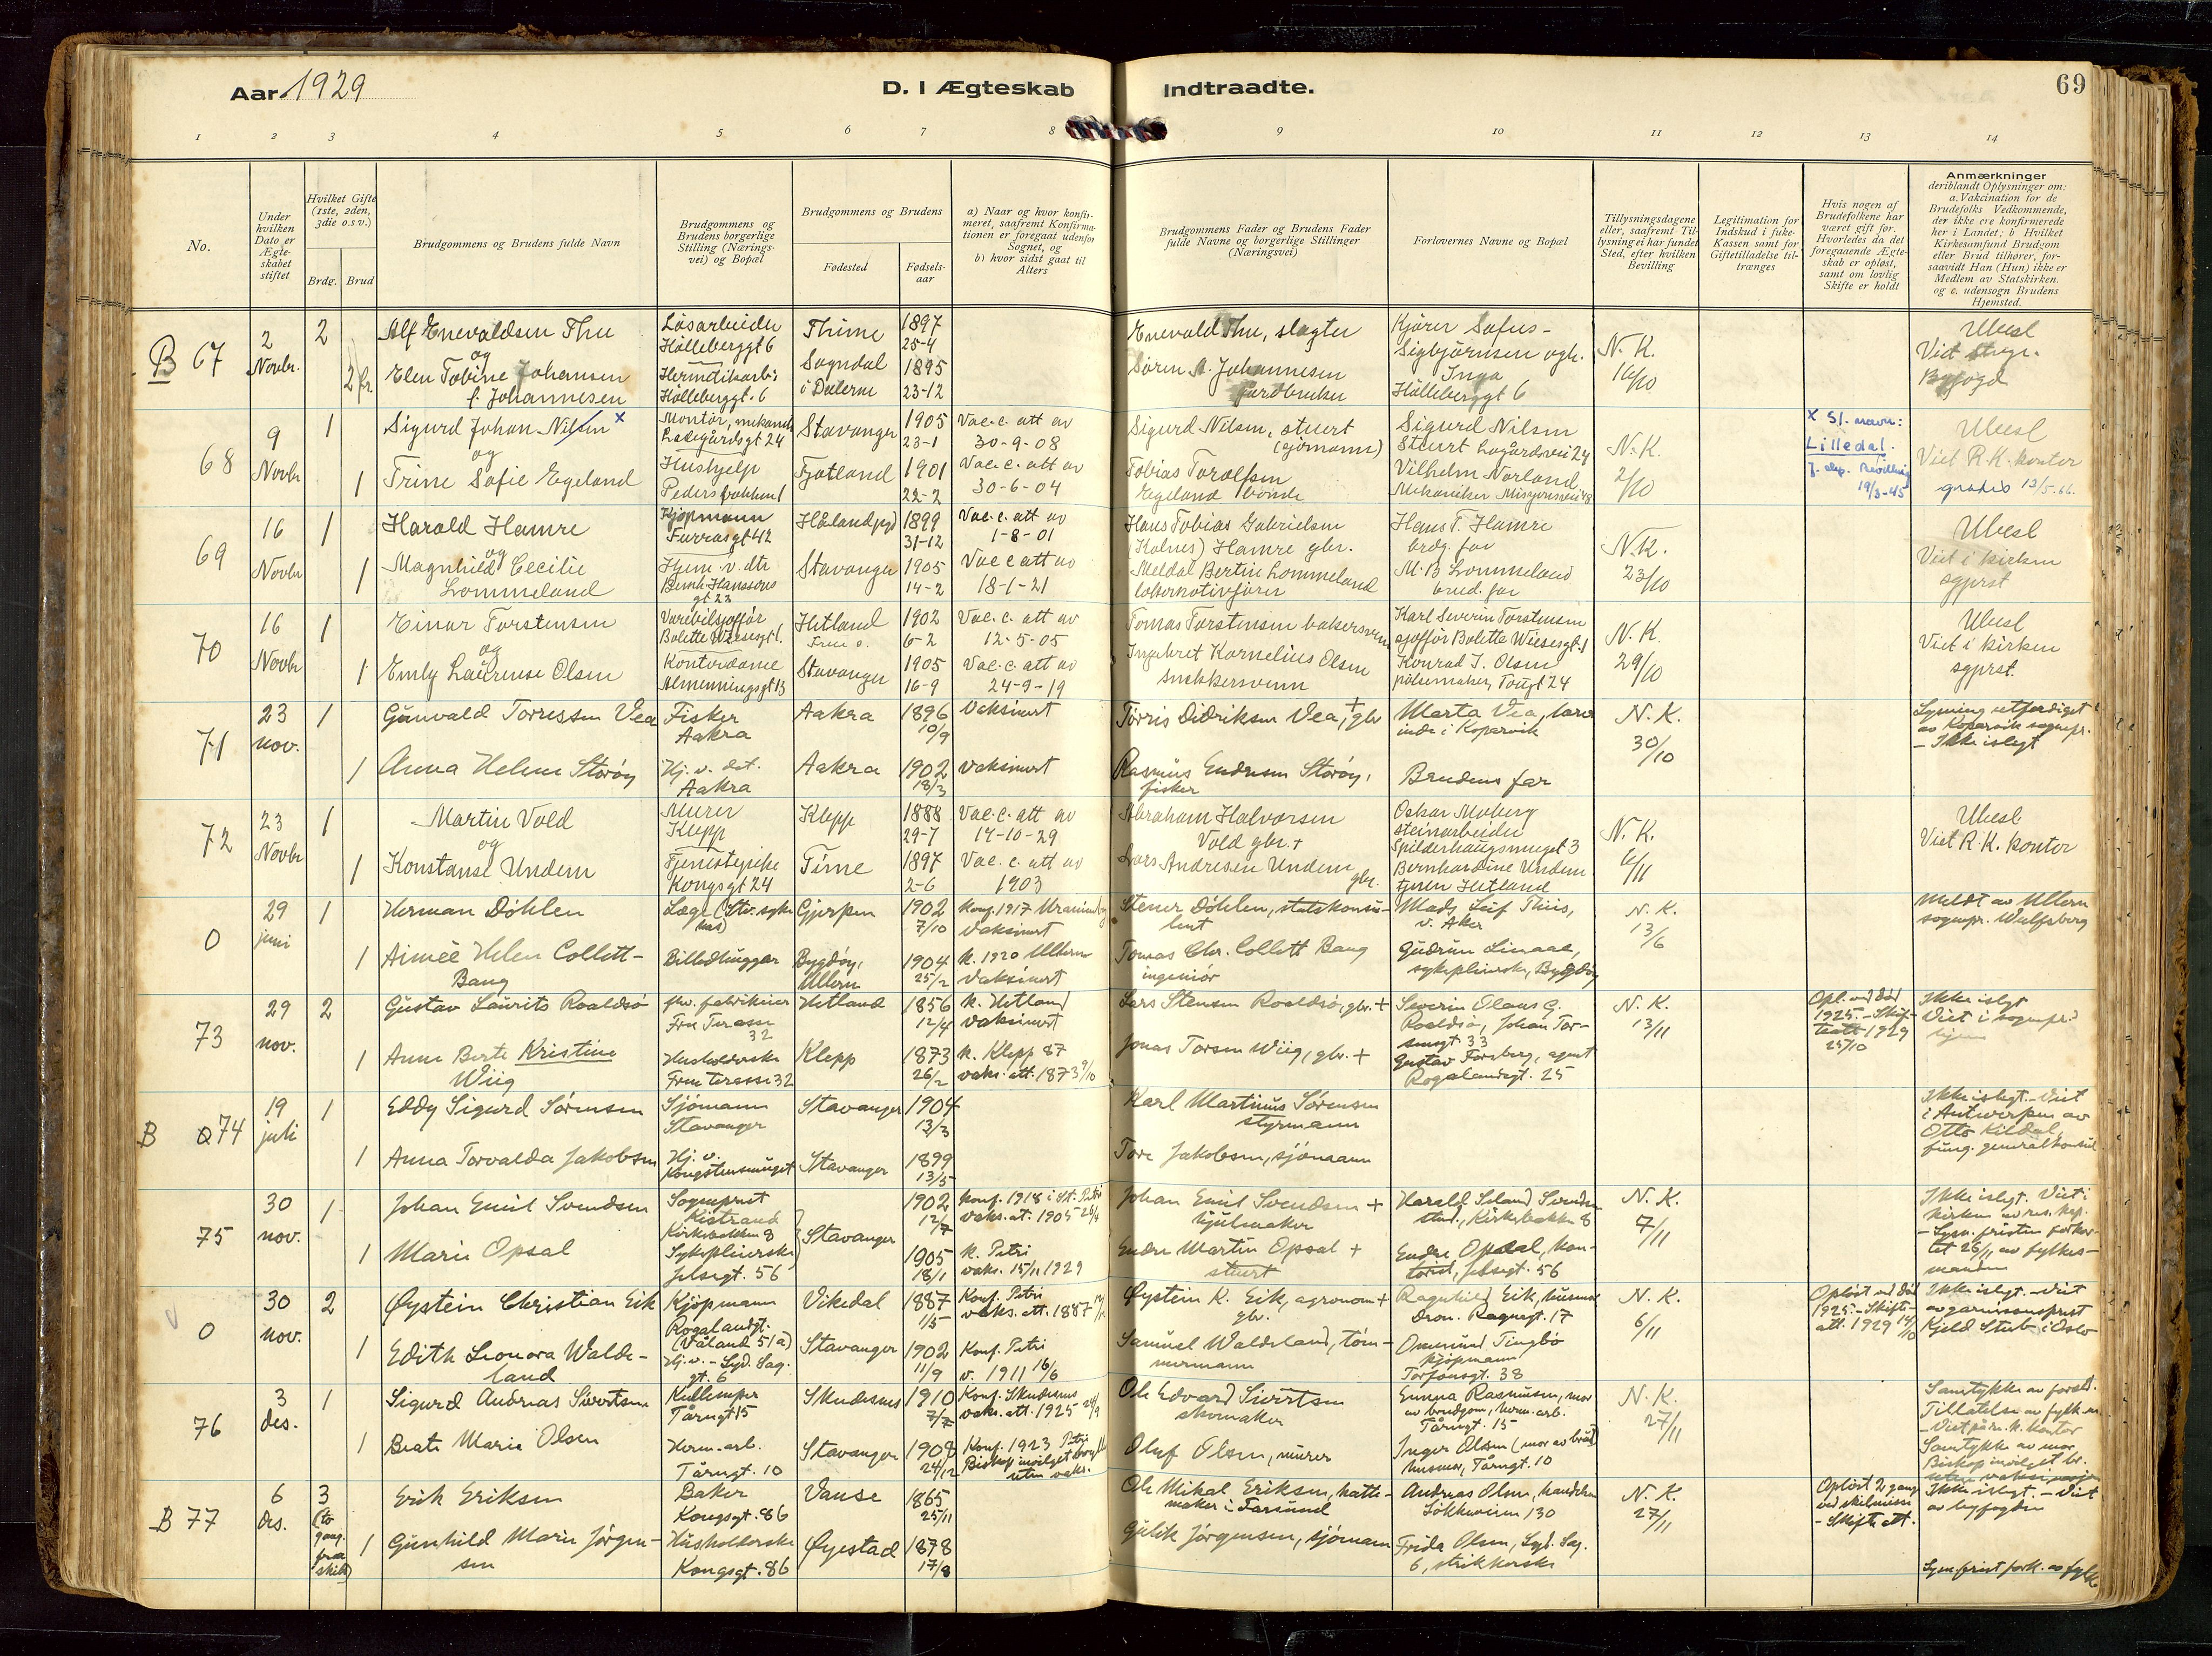 Aar 1929
D. I Ægteskab Indtraadte.
69
1 2 3 4 5 6 7 8 9 10 11 12 13 14
No.
Under hvilken Dato er Ægteskabet stiftet
Hvilket Gifte (1ste, 2den, 3die o.s.v.)
Brdg. Brud
Brudgommens og Brudens fulde Navn
Brudgommens og Brudens borgerlige Stilling (Næringsvei) og Bopæl
Brudgommens og Brudens
Fødested
Fødselsaar
a) Naar og hvor konfirmeret, saafremt Konfirmationen er foregaat udenfor Sognet, og
b) hvor sidst gaat til Alters
Brudgommens Fader og Brudens Fader fulde Navne og borgerlige Stillinger (Næringsvei)
Forlovernes Navne og Bopæl
Tillysningsdagene eller, saafremt Tillysning ei har fundet Sted, efter hvilken Bevilling
Legitimation for Indskud i Enke-Kassen samt for Giftetilladelse tiltrænges
Hvis nogen af Brudefolkene har været gift før. Hvorledes da det foregaaende Ægteskab er opløst, samt om lovlig Skifte er holdt
Anmærkninger
deriblandt Oplysninger om: a. Vakcination for de Brudefolks Vedkommende, der ikke ere konfirmerede her i Landet; b Hvilket Kirkesamfund Brudgom eller Brud tilhører, forsaavidt Han (Hun) ikke er Medlem av Statskirken. og c. udensogn Brudens Hjemsted.
B 67
2 Novbr.
2
Alf Enevaldsen Thu
og
2
Elen Tobine Johansen
f. Johannesen
Løsarbeider
Hølleberggt 6
Hermetikarb.
Hølleberggt. 6
Thime
Sogndal i Dalerne
1897
25-4
1895
23-12
Enevald Thu, slagter
Søren A. Johannesen
jordbruker
Kjører Sofus
Sigbjørnsen ogh.
Inga
Hølleberggt 6
N. K.
16/10
Ubesl
Viet
Byfogd
68
9 Novbr
1
Sigurd Johan Nilsen x
og
1
Trine Sofie Egeland
Montør, mekanik
24
Hushjelp
Stavanger
Fjotland
1905
23-1
1901
22-2
Vac. c. att av
30-9-08
Vac. c. att av
30-6-04
Sigurd Nilsen, stuert
(sjømann)
Tobias Torolfsen
Egeland bonde
Sigurd Nilsen
Stuert Lagårdsvei 24
Vilhelm Norland
Mekaniker Misjonsvei 48
N. K.
2/10
x Sl. navn:
Lilledal.
19/3-45
Ubesl
Viet R. K. kontor
gratis 12/5.66.
69
16 Novbr
1
Harald Hamre
og
1
Magnhild Cecilie
Lommeland
Kjøpmann
Furrasgt 42
Hjem. v. dtr
Bernh. Hanssens
gt 22
Hålandpgd
Stavanger
1899
31-12
1905
14-2
Vac. c. att av
1-8-01
Vac c att av
18-1-21
Hans Tobias Gabrielsen
(Kolnes) Hamre gbr.
Meldal Bertin Lommeland
lokomotivfører
Hans T. Hamre
brdg. far
M. B Lommeland
brud. far
N. K.
23/10
Ubesl
Viet i kirken
sgprst
70
16 Novbr
1
Einar Torstensen
og
1
Emly Laurense Olsen
Varebilsjåffør
Bolette Wiesegt 1.
Kontordame
Almenningsgt 13
Hetland
Stavanger
1902
6-2
1905
16-9
Vac. c. att av
12-5-05
Vac. c. att av
24-9-19
Tomas Torstensen bakersvenn
Ingebret Kornelius Olsen
snekkersvenn
Karl Severin Torstensen
sjåffør Bolette Wiesesgt. 1
Konrad J. Olsen
pølsemaker, Tougt 24
N. K.
29/10
Ubesl
Viet i kirken
sgprst.
71
23 nov.
1
Gunvald Torressen Vea
1
Anna Helene Storøy
Fisker
Aakra
Hj. v. dat.
Aakra
Aakra
Aakra
1896
10/9
1902
18/3
Vaksinert
Vaksinert
Tørris Didriksen Vea, + gbr
Rasmus Endresen Storøy,
fisker
Marta Vea, lærer
inde i Kopervik
Brudens far
N. K.
30/10
Lysning utferdiget
av Kopervik sognepr.
- Ikke islegt
72
23 Novbr
1
Martin Vold
og
1
Konstanse Undem
Murer
Klepp
Tjenestepike
Kongsgt 24
Klepp
Time
1888
29-7
1897
2-6
Vac. c. att av
14-10-29
Vac. c. att av
1903
Abraham Halvorsen
Vold gbr. +
Lars Andresen Undem gbr.
Oskar Moberg
steinarbeider
Spilderhaugsmuget 3
Bernhardine Undem
tjnen Hetland
N. K.
6/11
Ubesl.
Viet R. K. kontor
0
29 juni
1
Herman Døhlen
1
Aimeè Helen Collett-
Bang
Læge (Stv. syke
hus)
Billedhugger
Gjerpen
Bygdøy,
Ullern
1902
7/10
1904
25/2
Konf. 1917
Vaksinert
k. 1920 Ullern
Vaksinert
Stener Døhlen, statskonsu-
lent
Tomas Chr. Collett Bang
ingeniør
Mads Leif Thiis,
v. Aker
Gudrun Linaae,
sykepleierske, Bygdøy
N. K.
13/6
Meldt av Ullern
sognepr. Wulfsberg
73
29 nov.
2
Gustav Laurits Roaldsø
1
Anne Berte Kristine
Wiig
fhv. fabrikeier
Frue Terasse
32
Husholderske
Frue terasse 32
Hetland
Klepp
1856
12/4
1873
26/2
k. Hetland
vaksinert
k. Klepp 87
vaks. att. 1873 9/10
Lars Stensen Roaldsø, gbr. +
Jonas Torsen Wiig, gbr. +
Severin Olaus G.
Roaldsø, Johan Tor-
sensgt 33
Gustav Forsberg, agent
Rogalandsgt. 25
N. K.
13/11
Opl. ved død
1925. - Skif-
teatt 1929
25/10
Ikke islegt
Viet i sognepr.s
hjem
B 74
19 juli
1
Eddy Sigurd Sørensen
1
Anna Torvalda Jakobsen
Sjømann
Stavanger
Hj. v.
Kongstensmuget
Stavanger
Stavanger
1904
13/3
1899
13/5
Karl Martinus Sørensen
styrmann
Tore Jakobsen, sjømann
Ikke islegt. - Viet
i Antwerpen av
Otto Kildal,
fung. generalkonsul
75
30 nov.
1
Johan Emil Svendsen
1
Marie Opsal
Sogneprest
Kistrand
Kirkebakken 8
Sykepleierske
Jelsegt. 56
Stavanger
1902
12/7
1905
18/1
Konf. 1918 i St. Petri
vaks. at. 1905 26/4
k. Petri
vaks. 15/11 1929
Johan Emil Svendsen +
hjulmaker
Endre Martin Opsal +
stuert
Harald Svendsen
stud., Kirkebakken 8
Endre Opsal, kon-
torist, Jelsegt. 56
N. K.
7/11
Ikke islegt. Viet i
kirken av res. kap.
- Lysn. fristen forkor-
tet 26/11 av fylkes-
mannen
0
30 nov.
2
Øystein Christian Eik
1
Edith Leonora Walde-
land
Kjøpmann
Rogalandgt.
(Våland 51a)
Hj. v. - Syd. Sag.
gt. 6
Vikedal
Stavanger
1887
1/5
1902
11/9
Konf. Petri
vaks. att. 1887
Konf. Petri
v. 1911 16/6
Øystein K. Eik, agronom +
gbr.
Samuel Waldeland, tøm-
mermann
Ragnhild Eik, husmor
Dron. Ragnegt. 17
Ommund Tingbø
kjøpmann
Torfæusgt. 38
N. K.
6/11
Opløst ved død
1925. - Skifte-
att. 1929 14/10
Ikke islegt. - Viet
av garnisonsprest
Kjeld Stub i Oslo
76
3 des.
1
Sigurd Andreas Sivertsen
1
Beate Marie Olsen
Kullemper
Tårngt 15
Herm. arb.
Tårngt. 10
Skudesnes
Stavanger
1910
7/2
1908
24/12
Konf. Skudesnes
vaks. att. 1925 24/9
Konf. 1923 Petri
uten vaks.
Ole Edvard Sivertsen
skomaker
Oluf Olsen, murer
Emma Rasmussen, mor
av brudgom, herm. arb.
Tårngt. 15
Inger Olsen (mor av brud)
husmor, Tårngt. 10
N. K.
27/11
Samtykke av foreld.
Tillatelse av fylk.m.
- Viet på r. k. kontor
Samtykke av mor
Biskop innvilget br.
B 77
6 des.
3
(to gang. fra skilt)
Erik Eriksen
1
Gunhild Marie Jørgen-
sen
Baker
Kongsgt. 86
Husholderske
Kongsgt. 86
Vanse
Øyestad
1865
25/11
1878
17/8
Ole Mikal Eriksen, hatte-
maker i Farsund
Gulik Jørgensen, sjømann
Andreas Olsen, handelsm
Løkkeveien 130
Frida Olsen, Syd. Sag.
6, strikkerske
N. K.
27/11
Opløst 2 gang
ved skilsmisse
- Skifte att.
Ikke islegt. - Viet
av byfogden
Lysn. frist fork. av fylk.